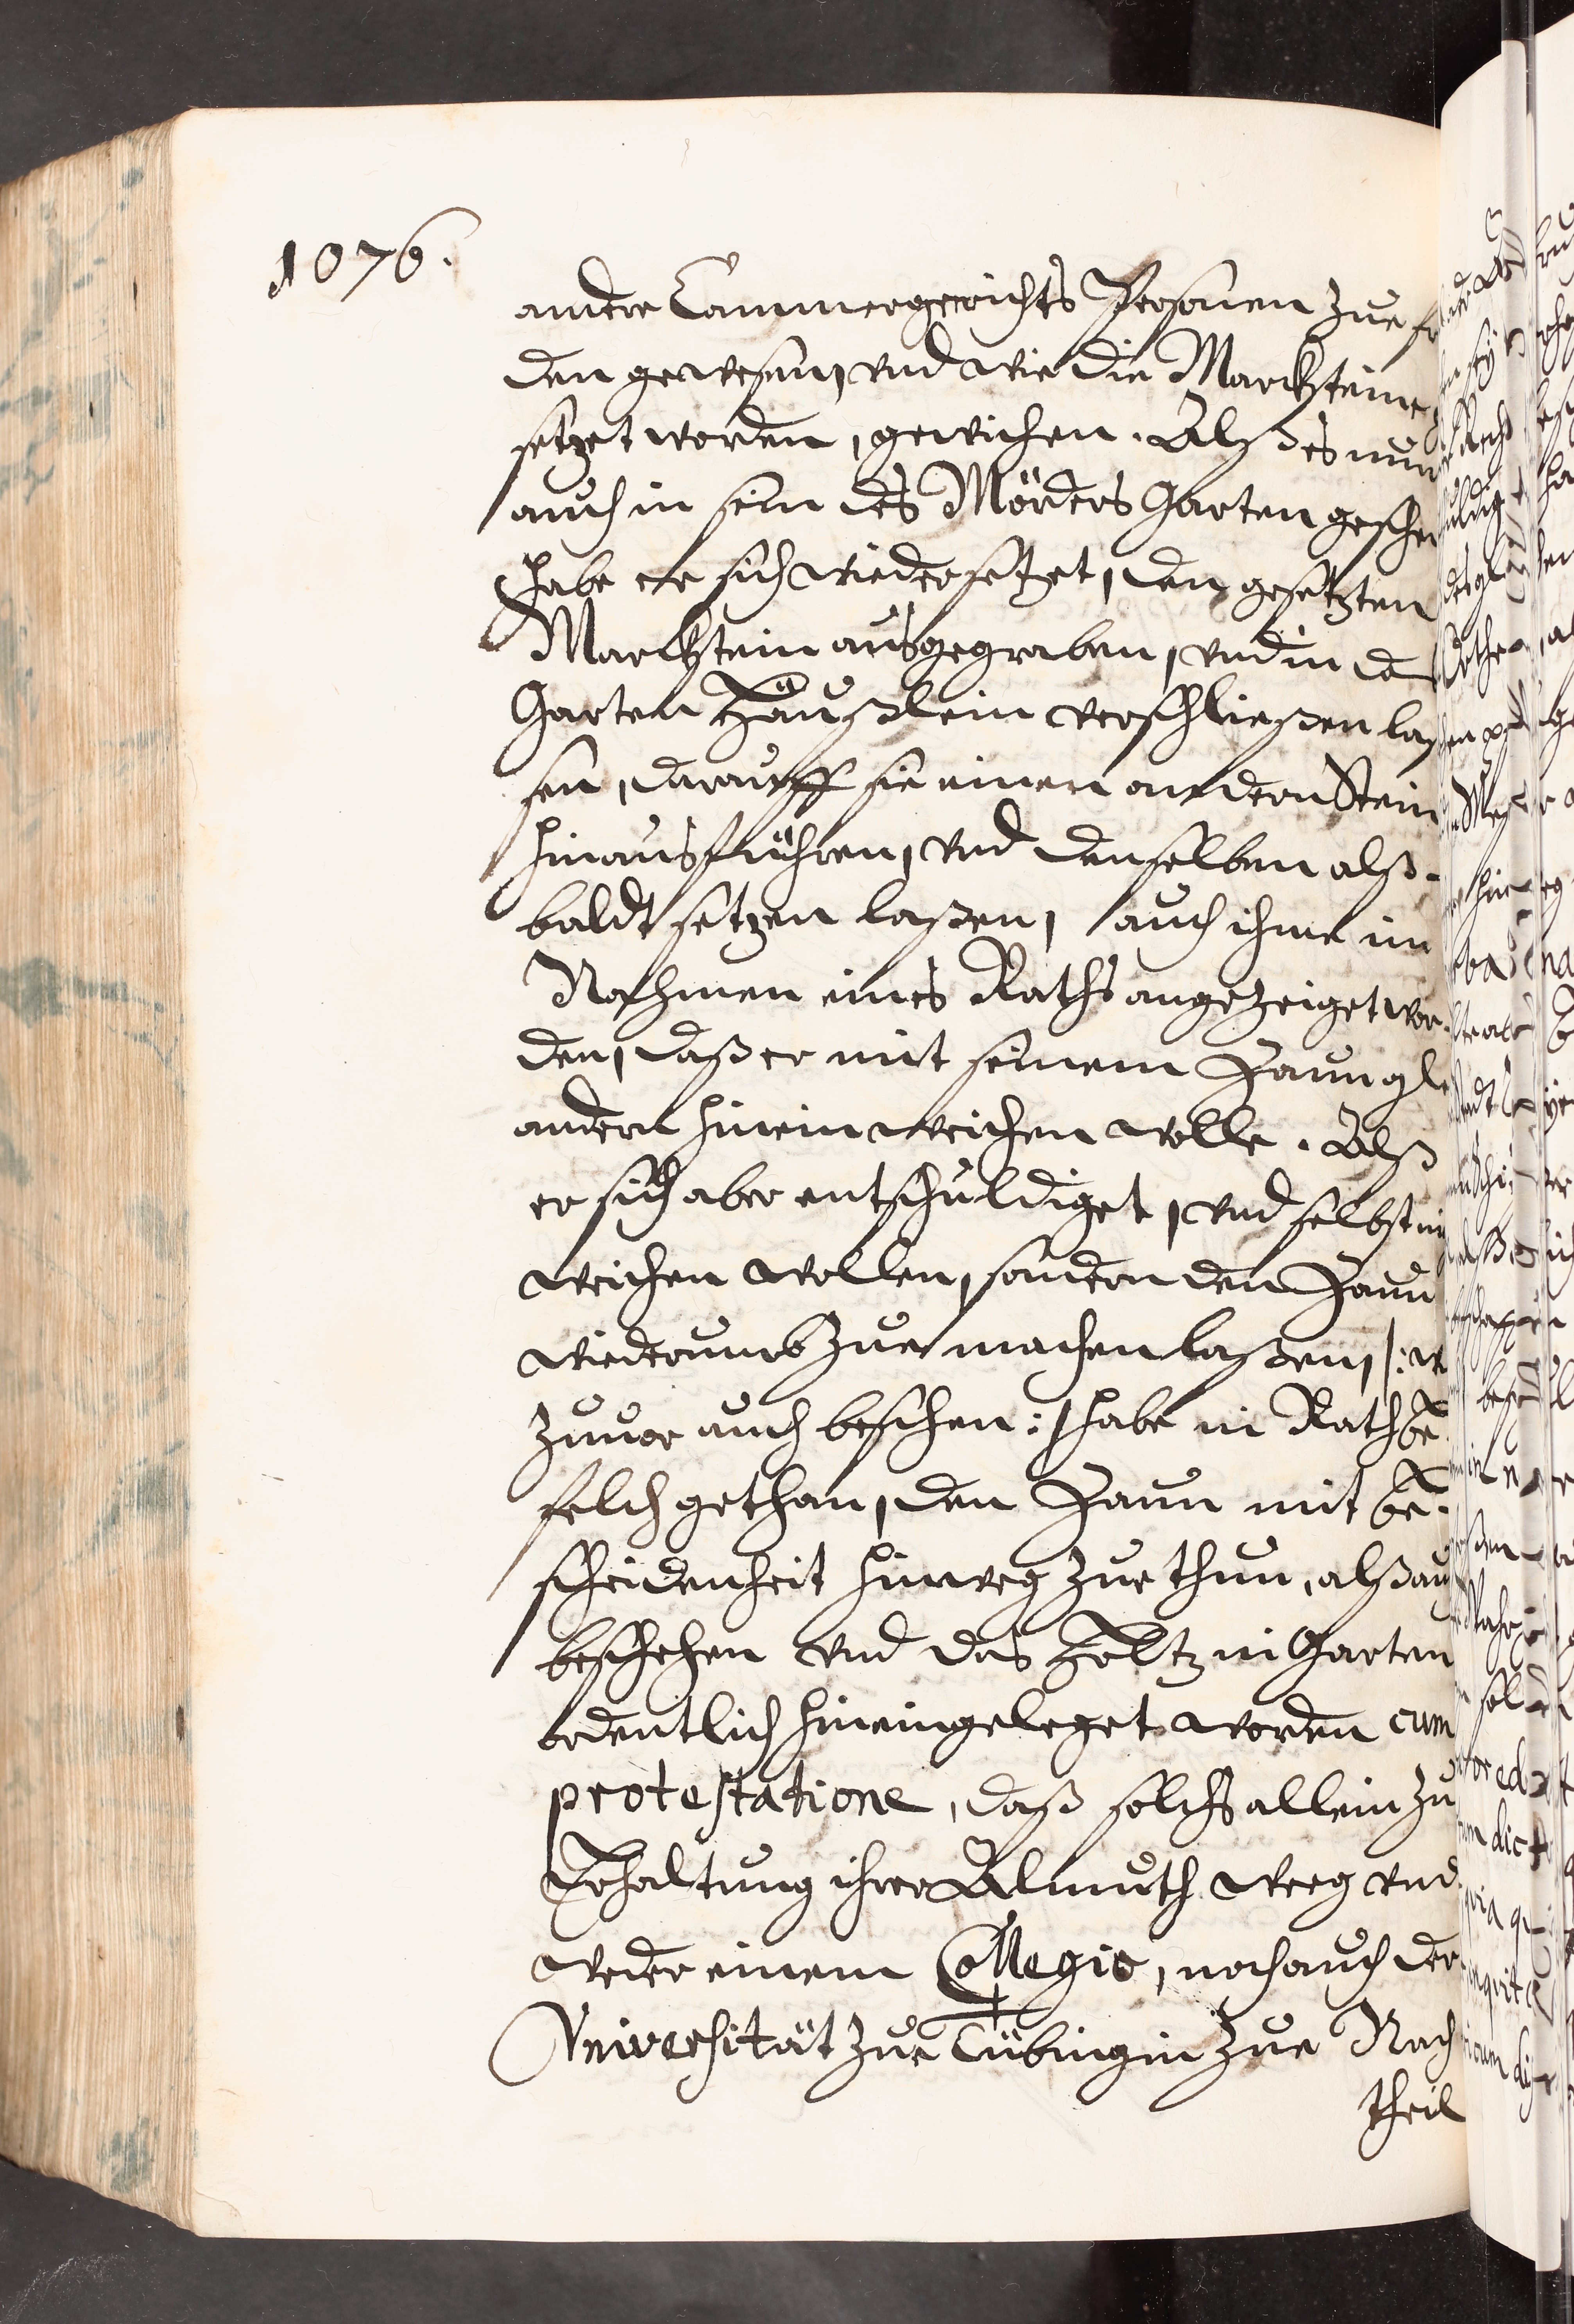 1076.
andere Cammergerichts Persohnen zue
den gewesen, vnd wie die Marckstein
setzet worden, gewichen. Alß es nun
auch in sein des Mörders Garten gesche
habe er sich widersetzet, den gesetzten
Marckstein ausgegraben, vnd in
Garten Häußlein verschließen laß
sen, darauff sie einen andern Stein
hinausführen, vnd denselben alß-
baldt setzen laßen, auch ihme im
Nahmen eines Raths angezeiget wor-
den, daß er mit seinem Zaun
andern hinein weichen wolle. Alß
er sich aber entschuldiget, vnd selbst
weichen wollen, sondern den Zaun
wiederumb zue machen laßen, /:
zuuor auch beschehen :/ habe ein Rath be-
felch gethan, den Zaun mit be-
scheidenheit hinweg zue thun, alß
beschehen vnd das Holtz in Garten
ordentlich hineingeleget worden cum
protestatione, daß solchs allein zu
Erhaltung ihrer Almuth weeg vnd
weder einem Collegio, noch auch der
Vniversität zue Tübingen zue Nach
theil